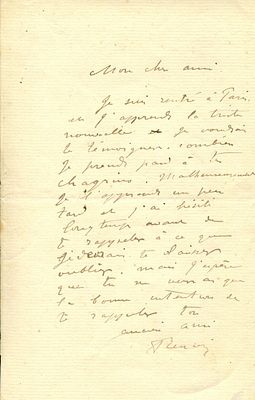 Mon cher ami
Je suis rentré à Paris,
et j'apprends la triste
nouvelle je voudrais
te témoigner combien
je prends part à
chagrins. Malheureusement
je l'apprends un peu
tard et j'ai hésité
longtemps avant de
te rappeler à ce que
je devrais te laisser
oublier, mais j'espère
que tu ne verras que
la bonne intention de
te rappeler ton
ancien ami
Renoir